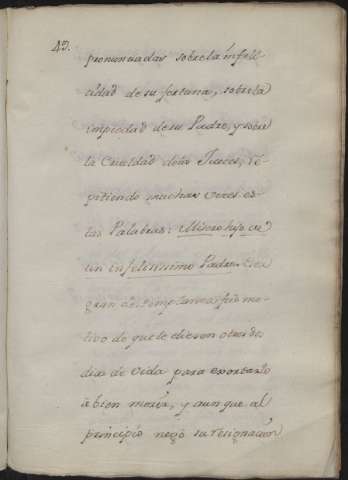 43.
pronunciadas sobre la infeli-
cidad de su fortuna, sobre la
impiedad de su Padre, y sobre
la Crueldad de sus Jueces, re-
pitiendo muchas veces es-
tas Palabras: Misero hijo de
un infelicissimo Padre. Esta
gran destemplanza fue mo-
tivo de que le diesen otros dos
dias de vida para exortarlo
à bien morir, y aunque al
principio negó su resignacion